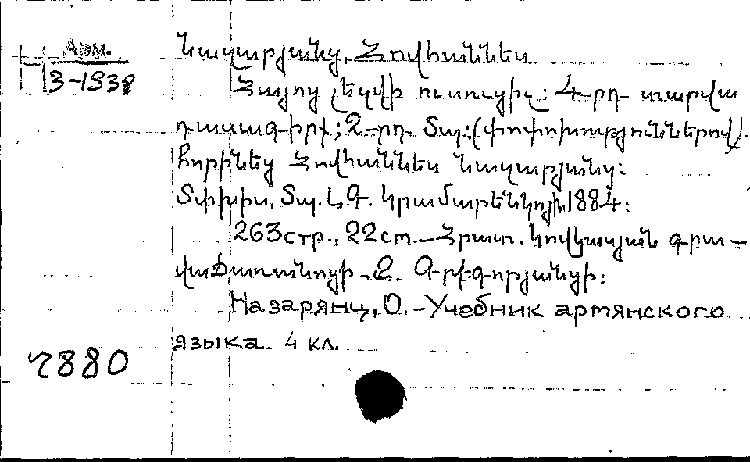 Арм.
3-1938
Նազարյանց, Հովհաննես
Հայոց լեզվի ուսուցիչ: 4-րդ տարվա
դասագիրք; 2-րդ տպ. (փոփոխություններով).
Հորինեց Հովհաննես Նազարյանց:
Տփխիս, Տպ. ԵՒ. Գ. Կրամարենկոյի, 1884:
263стр., 22см. - Հրատ. Կովկասյան գրա-
վաճառանոցի Զ. Գրիգորյանցի:
Назарянц, О. - Учебник армянского
языка. 4 кл.
7880